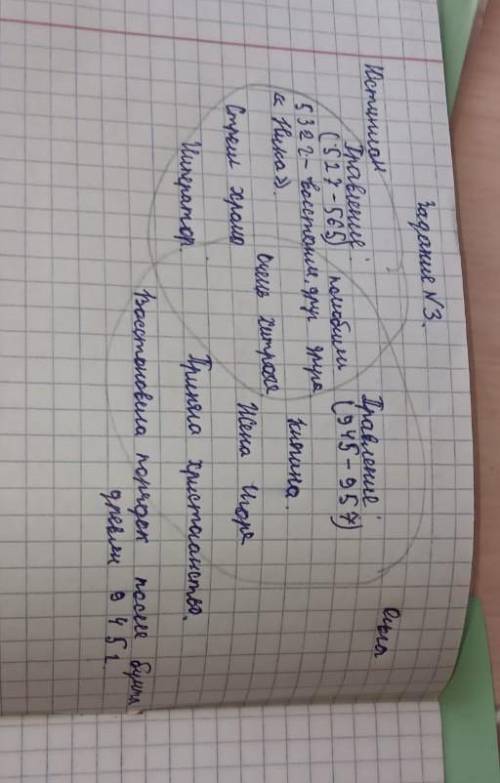 Задание №3.
Юстиниан
Ольга
Правление:
(527-565)
532 г - восстания
«Ника»).
Строил храмы
Император.
полюбили
друг друга
очень хитрые
Правление:
(945-957)
княгиня.
Жена Игоря
Приняла христианство.
Восстановила порядок после бунта
древлян 945 г.